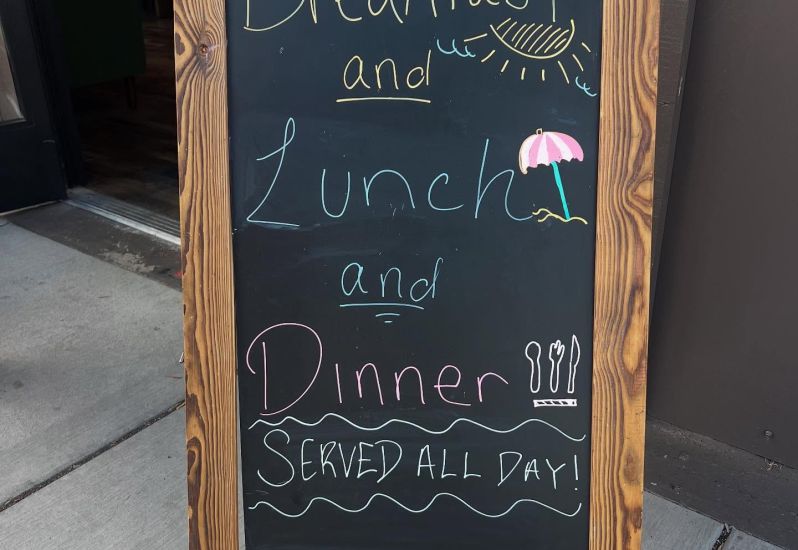 Breakfast
and
Lunch
and
Dinner
SERVED ALL DAY!